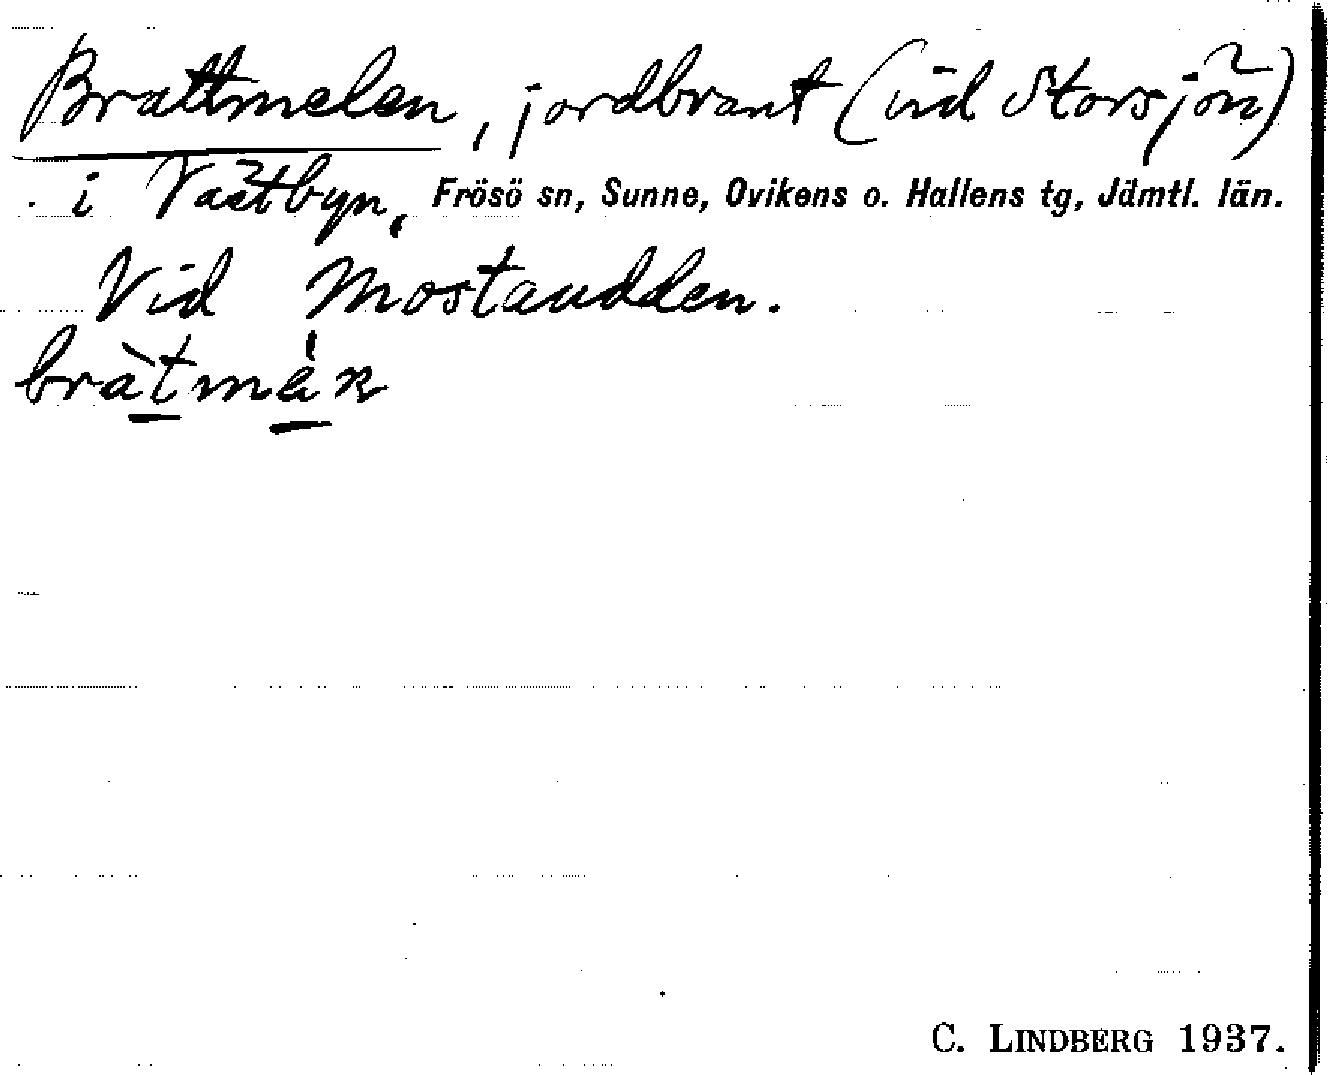 Brattmelen, jordbrant (vid Storsjön)
i Västbyn, Frösö sn, Sunne, Ovikens o. Hallens tg, Jämtl. län.
Vid Mostaudden.
bràtmèn
C. LINDBERG 1937.